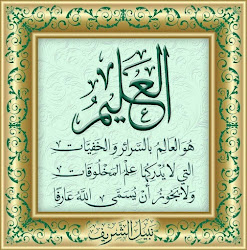 العَلِيمُ
هُوَ العَالِمُ بِالسَّرَائِرِ وَالخَفِيَّاتِ
الَّتِي لَا يُدْرِكُهَا عِلْمُ المَخْلُوقَاتِ
وَلَا يَجُوزُ أَنْ يُسَمَّى اللهُ عَارِفًا
نبيل الشريف